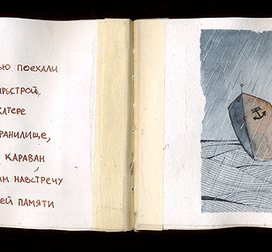 ЬЮ ПОЕХАЛИ
РЬСТРОЙ,
КАТЕРЕ
РАНИЛИЩЕ,
КАРАВАН
АМ НАВСТРЕЧУ
ЕЙ ПАМЯТИ